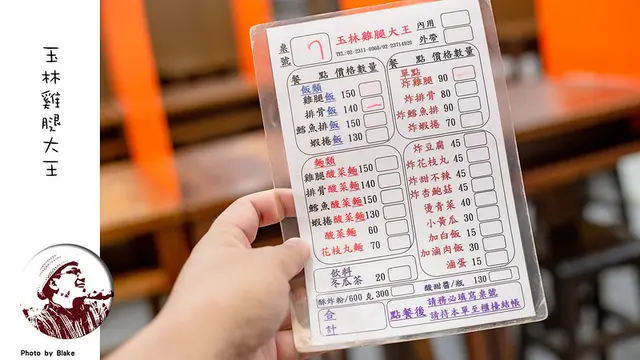 玉林雞腿大王
Photo by Blake
桌號
7
玉林雞腿大王
TEL:02-2311-0968/02-23714920
內用
外帶
餐點 價格 數量
飯類
雞腿飯 150
排骨飯 140
鱈魚排飯 150
蝦捲飯 130
麵類
雞腿酸菜麵 150
排骨酸菜麵 140
鱈魚酸菜麵 150
蝦捲酸菜麵 130
酸菜麵 60
花枝丸麵 70
飲料
冬瓜茶 20
酥炸粉/600克 300
合計
餐點 價格 數量
單點
炸雞腿 90
炸排骨 80
炸鱈魚 90
炸蝦捲 70
炸豆腐 45
炸花枝丸 45
炸甜不辣 45
炸杏鮑菇 45
燙青菜 40
小黃瓜 30
加白飯 15
加滷肉飯 30
滷蛋 15
酸甜醬/瓶 130
點餐後
請務必填寫桌號
請持本單至櫃檯結帳